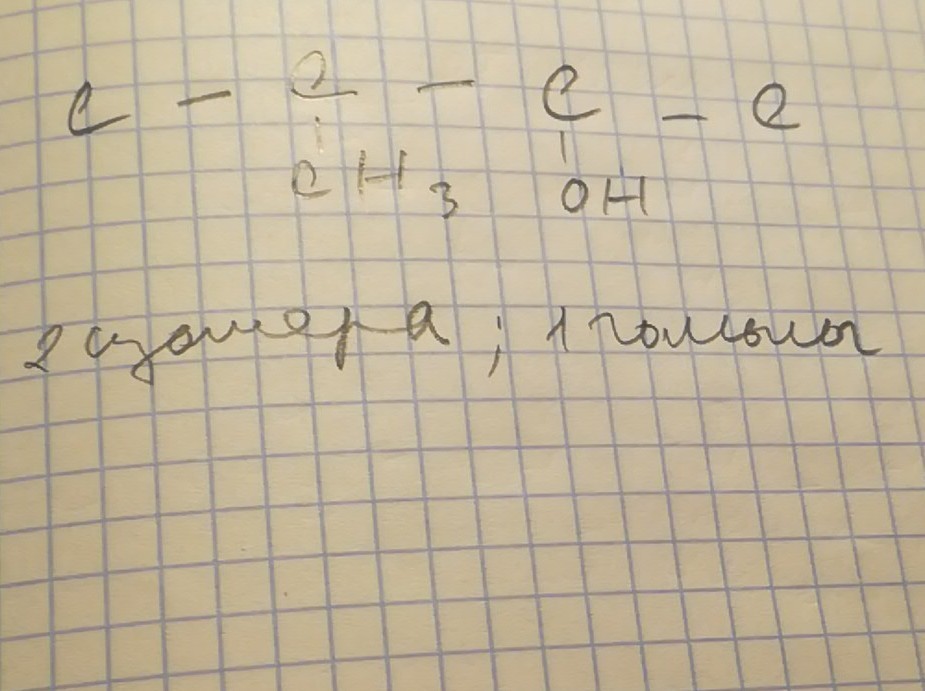 C - C - C - C
CH3 OH
2 изомера; 1 гомолог